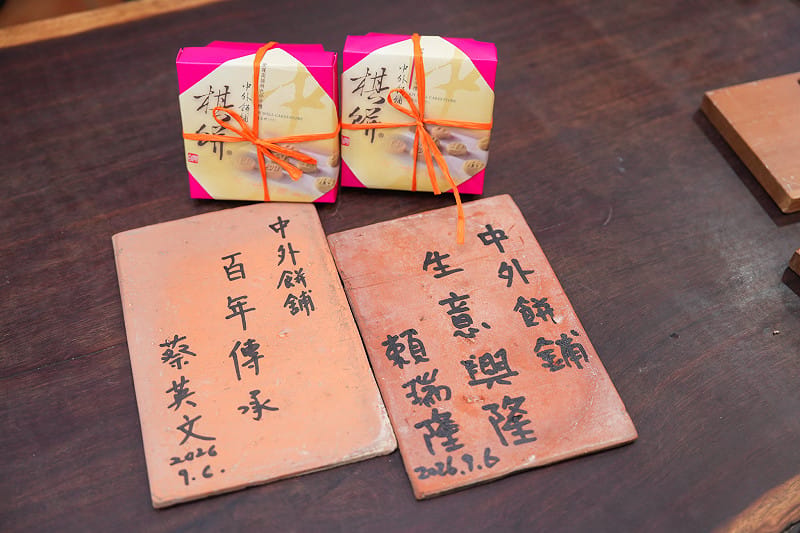 棋餅
中外餅舖
棋餅
中外餅舖
中外餅舖
百年傳承
蔡英文
2026
9.6.
中外餅舖
生意興隆
賴瑞隆
2026.9.6